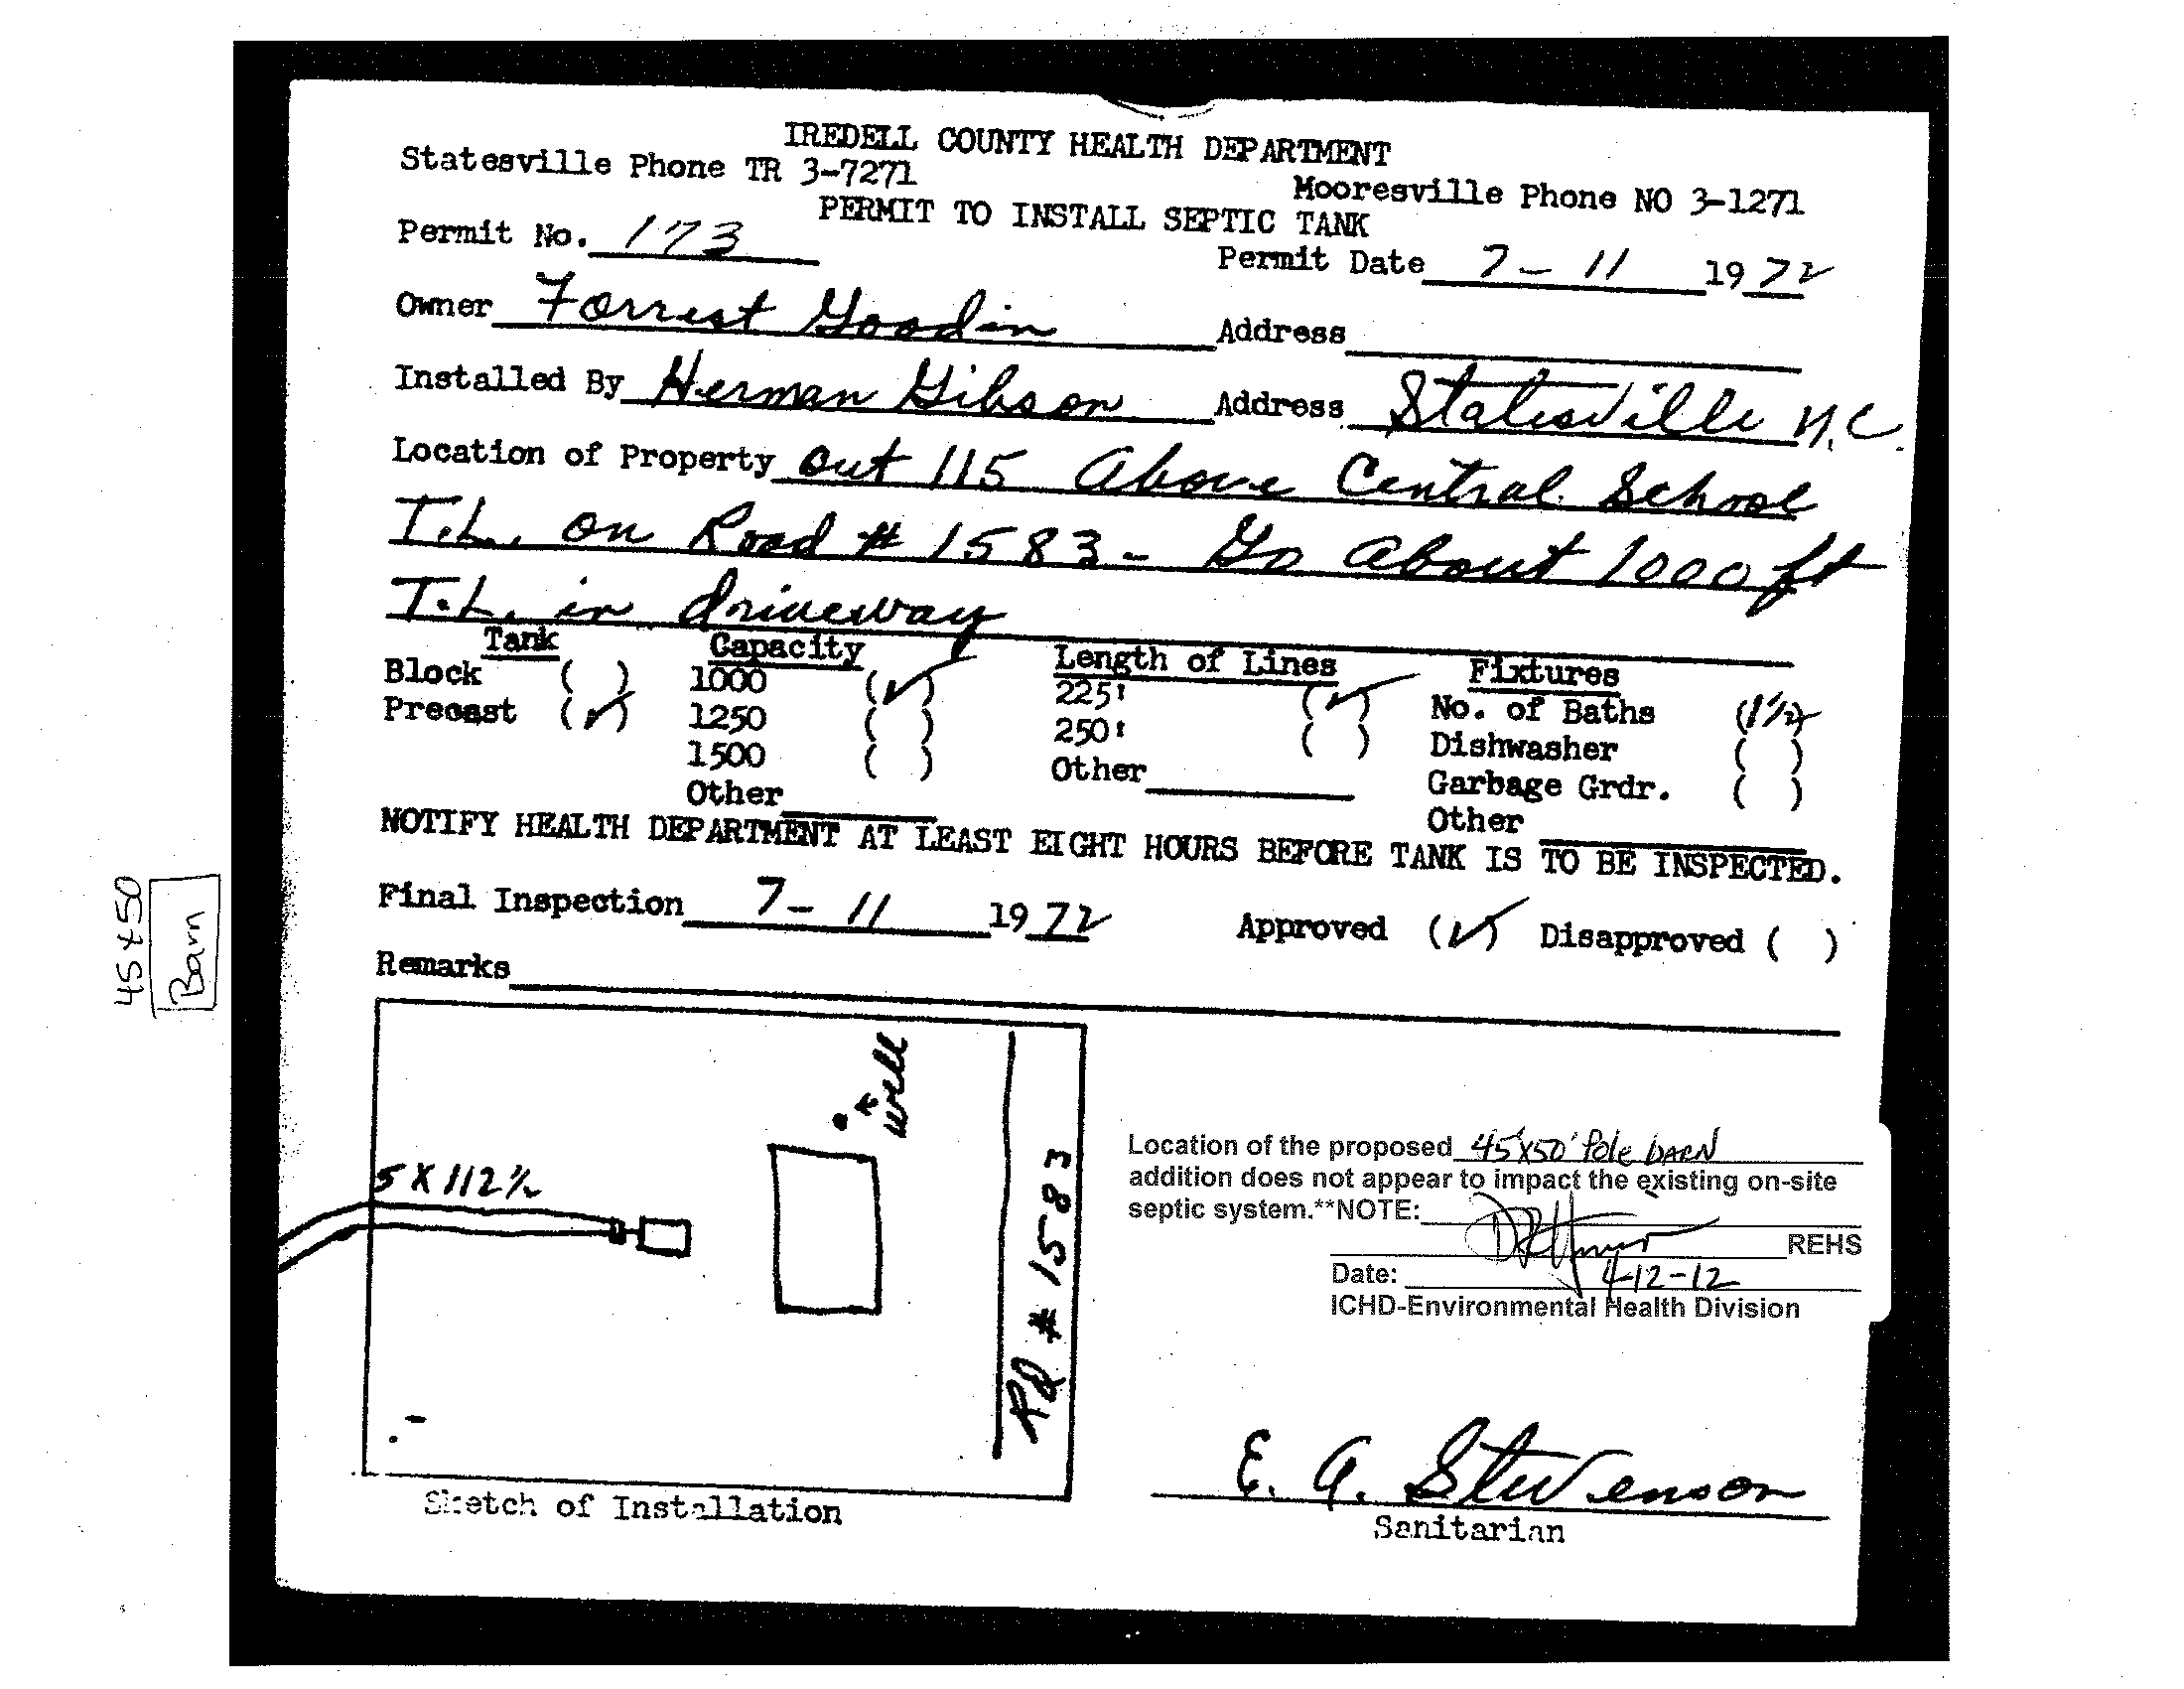 IREDELL COUNTY HEALTH DEPARTMENT
Statesville Phone TR 3-7271
Mooresville Phone NO 3-1271
PERMIT TO INSTALL SEPTIC TANK
Permit No. 173
Permit Date 7-11 1972
Owner Forrest Goodin Address
Installed By Herman Gibson Address Statesville N.C.
Location of Property out 115 Above Central School
T.L. on Road # 1583 - Go About 1000 ft
T.L. in driveway
Tank Capacity Length of Lines Fixtures
Block ( ) 1000 (✓) 225' (✓) No. of Baths (1½)
Precast (✓) 1250 ( ) 250' ( ) Dishwasher ( )
1500 ( ) Other Garbage Grdr. ( )
Other Other
NOTIFY HEALTH DEPARTMENT AT LEAST EIGHT HOURS BEFORE TANK IS TO BE INSPECTED.
Final Inspection 7-11 1972 Approved (✓) Disapproved ( )
Remarks
45x50
Barn
well
5 X 112½
Rd # 1583
Sketch of Installation
Location of the proposed 45'x50' Pole barn
addition does not appear to impact the existing on-site
septic system.**NOTE:
REHS
Date: 4-12-12
ICHD-Environmental Health Division
E. A. Stevenson
Sanitarian